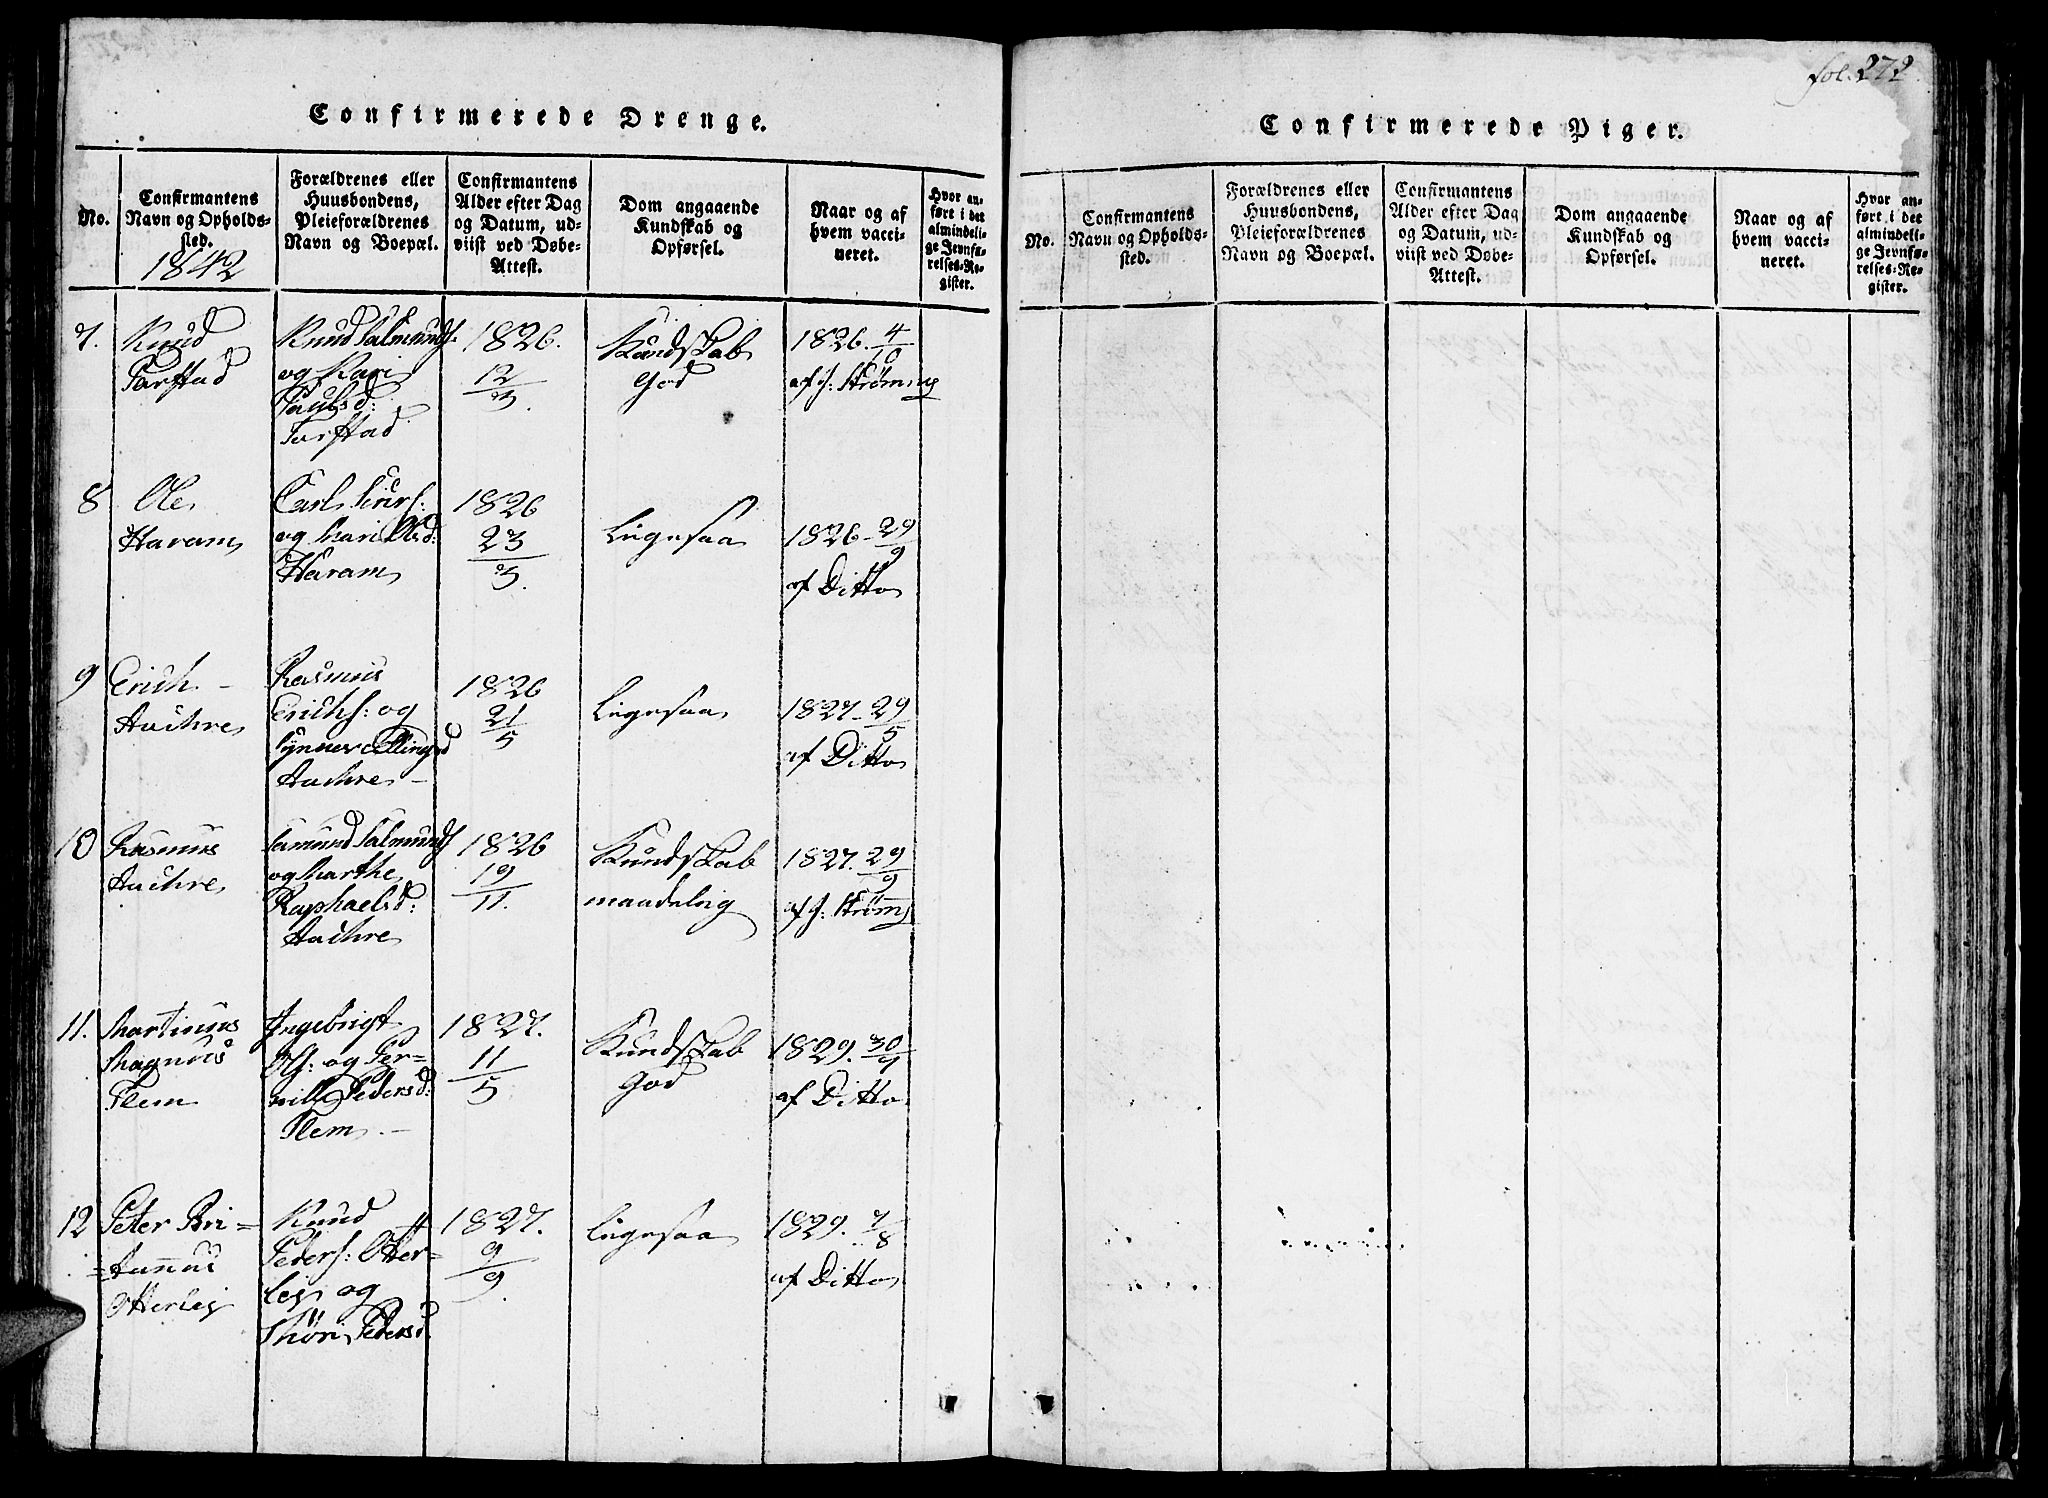 fol. 272
Confirmerede Drenge.
No.
Confirmantens
Navn og Opholds-
sted.
1842
Forældrenes eller
Huusbondens,
Pleieforældrenes
Navn og Boepæl.
Confirmantens
Alder efter Dag
og Datum, ud-
viist ved Døbe-
Attest.
Dom angaaende
Kundskab og
Opførsel.
Naar og af
hvem vacci-
neret.
Hvor an-
ført i det
almindeli-
ge Jevnfø-
relses-Re-
gister.
7.
Knud
Tarstad
Knud Salmunds.
og Kari
Paulsd:
Tarstad
1826.
12
3.
Kundskab
God
1826. 4/10
af J: Strømig
8
Ole
Haram
Carl
og Mari Olsd:
Haram
1826
23
3.
Ligesaa
1826 - 29/9
af Ditto
9
Erich -
Rasmus
Erichs: og
Synnev Ellingsd
1826
21
5
Ligesaa
1827 - 29/5
af Ditto
10
Rasmus
Samund Salmunds
og Marthe
Raphaelsd:
1826
19
11.
Kundskab
maadelig
1827. 29/9
af J: Strømg
11.
Martinus
Magnus
Flem
Ingebrigt
Ols: og Per-
nille Pedersd:
Flem. -
1827.
11
5
Kundskab
God
1829. 30/9
af Ditto
12
Peter Bri-
=tannus
Otterlei
Knud
Peders: Otter-
lei og
Thøri Pedersd.
1827.
9
9
Ligesaa
1829. 7/8
af Ditto
Confirmerede Piger.
No.
Confirmantens
Navn og Opholds-
sted.
Forældrenes eller
Huusbondens,
Pleieforældrenes
Navn og Boepæl.
Confirmantens
Alder efter Dag
og Datum, ud-
viist ved Døbe-
Attest.
Dom angaaende
Kundskab og
Opførsel.
Naar og af
hvem vacci-
neret.
Hvor an-
ført i det
almindeli-
ge Jevnfø-
relses-Re-
gister.